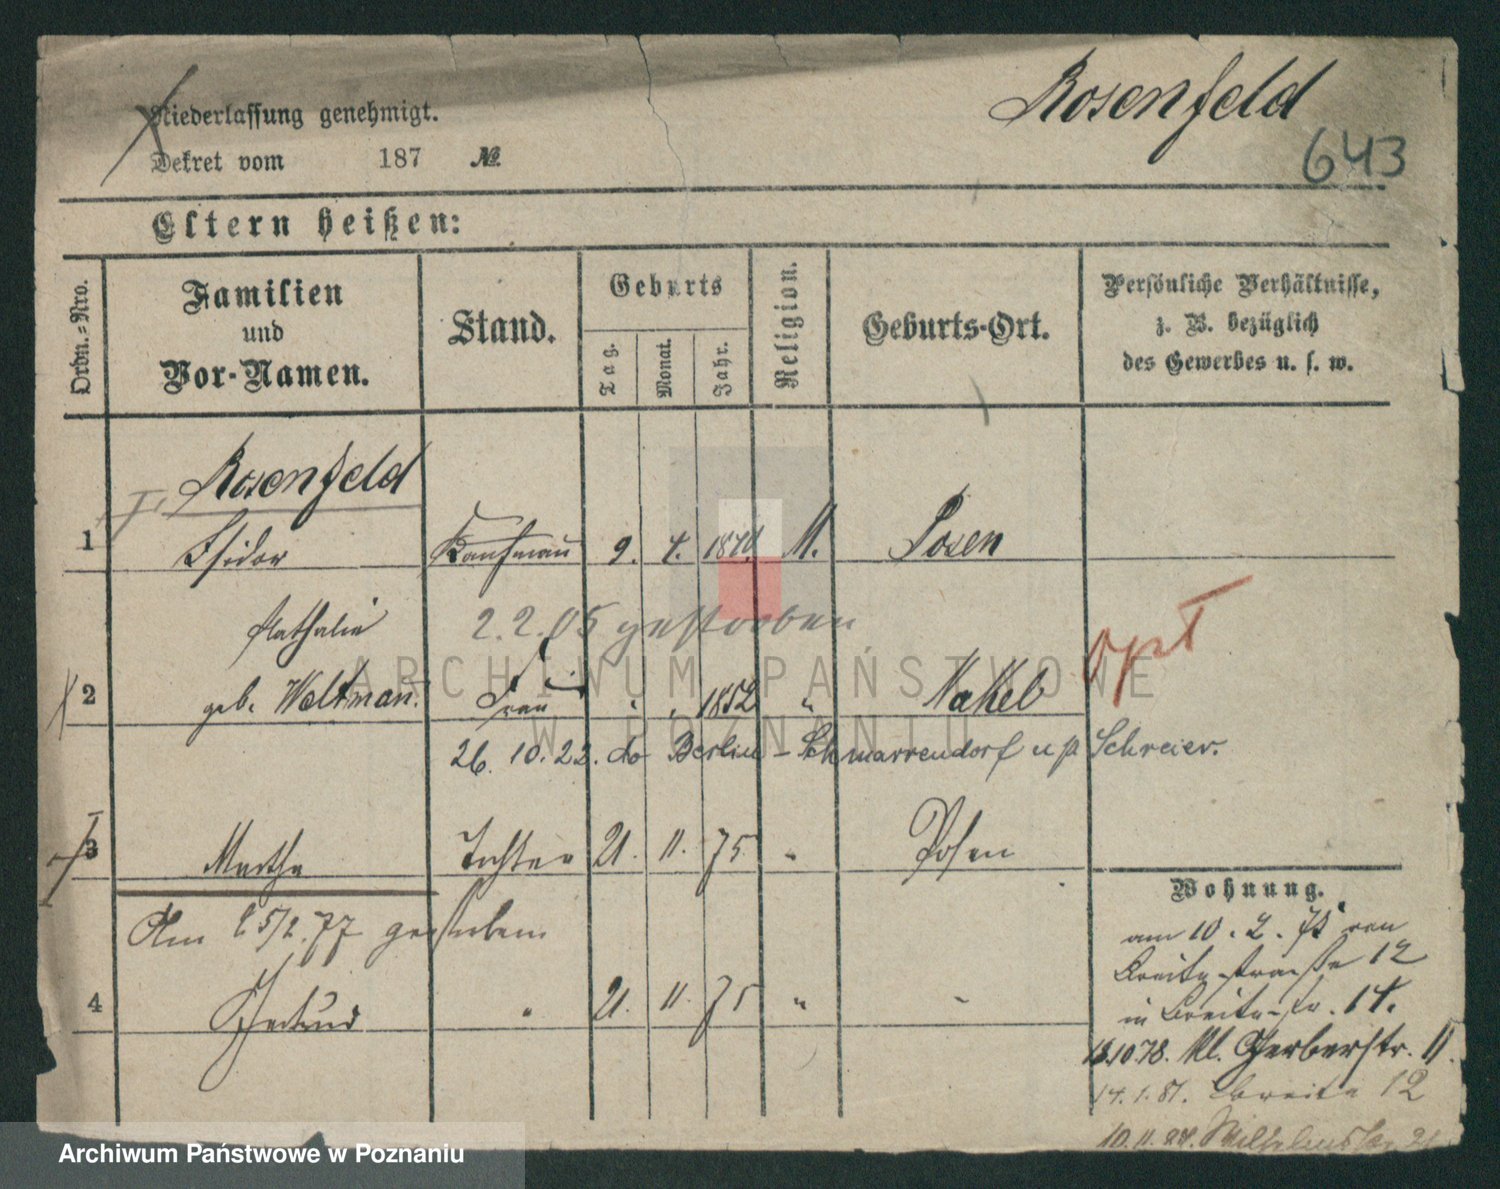 Niederlassung genehmigt.
Dekret vom 187 №
Rosenfeld
643
Eltern heißen:
Ordn.=Nro.
Familien
und
Vor-Namen.
Stand.
Geburts
Tag.
Monat.
Jahr.
Religion.
Geburts-Ort.
Persönliche Verhältnisse,
z. B. bezüglich
des Gewerbes u. s. w.
Rosenfeld
1 Isidor Kaufmann 9. 4. M. Posen
Nathalie 2.2.05 gestorben
2 geb. Woltmann Frau 1852 " Nakel
opt
26. 10. 22. do Berlin - Schmarrendorf u/p Schreier.
3 Martha Tochter 21. 11. 75. " Posen
Am 25/2.77 gestorben
4 Gertrud " 21. 11. 75 " "
Wohnung.
am 10. 2. von
Breitestrasse 12
in Breitestr. 14.
13.10.78. Kl. Gerberstr. 11.
14.1.81. Breite 12
10.11. Wilhelmstr.
ARCHIWUM PAŃSTWOWE
W POZNANIU
Archiwum Państwowe w Poznaniu